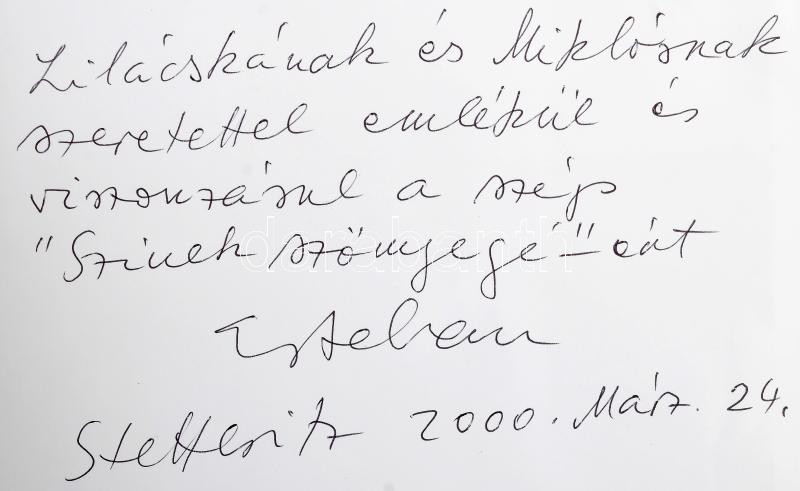 Lilácskának és Miklósnak
szeretettel emlékül és
viszonzásul a szép
"Színek szőnyege"-ért
Esteban
Stetteritz 2000. Márz. 24.
darabanth